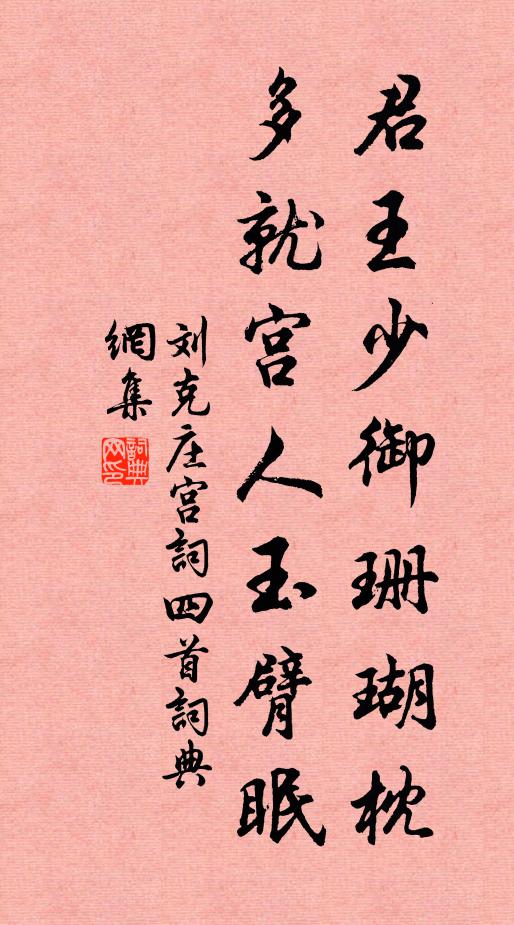 君王少御珊瑚枕
多就宫人玉臂眠
刘克庄宫詞四首詞典
網集
詞典网印